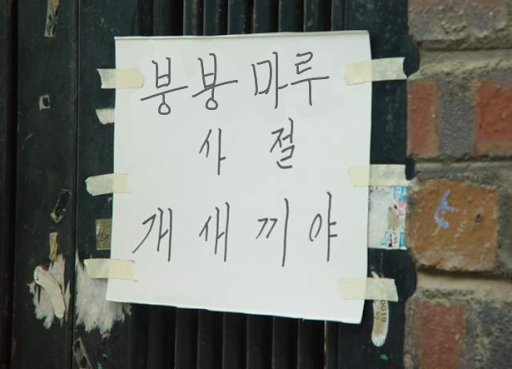 붕붕 마루
사절
개새끼야